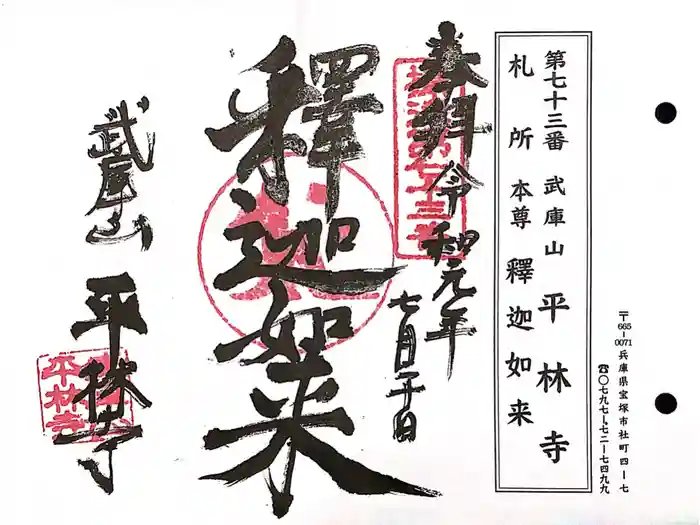 第七十三番 武庫山 平林寺
札所本尊 釋迦如来
〒665-0071 兵庫県宝塚市社町四-七
☎〇七九七-七二-七四九九
奉拝 令和元年
七月二十日
釋迦如来
武庫山 平林寺
平林寺